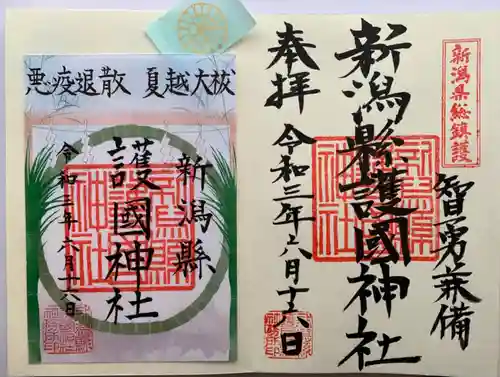 新潟県総鎮護
智勇兼備
新潟縣護國神社
奉拝
令和三年六月十六日
夏越大祓
悪疫退散
新潟縣
護國神社
令和三年六月十六日